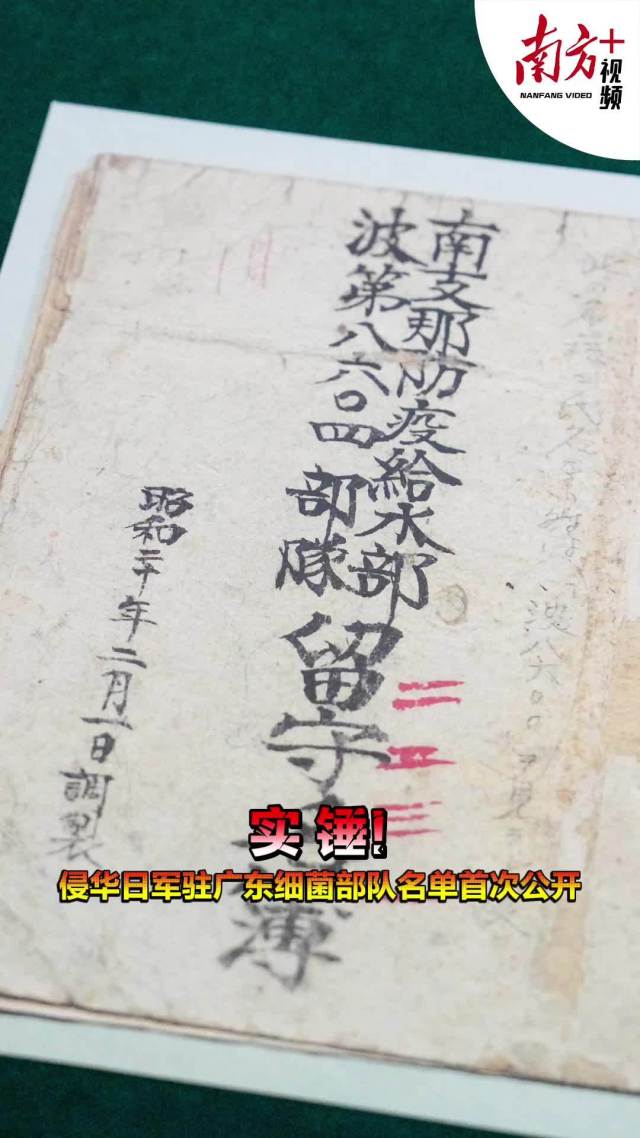 南方+
视频
NANFANG VIDEO
南支那防疫給水部
波第八六〇四部隊
留守
簿
二五三
昭和二十年二月一日調製
实锤!
侵华日军驻广东细菌部队名单首次公开